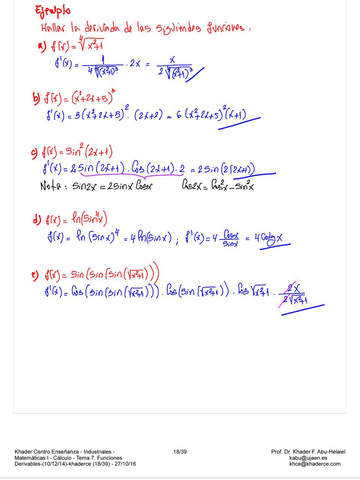 Ejemplo
Hallar la derivada de las siguientes funciones:
a) f(x) = ∜(x²+1)
f'(x) = 1/(4 ∜(x²+1)³) · 2x = x/(2 ∜(x²+1)³)
b) f(x) = (x²+2x+5)³
f'(x) = 3(x²+2x+5)² · (2x+2) = 6(x²+2x+5)²(x+1)
c) f(x) = sin²(2x+1)
f'(x) = 2 sin(2x+1) · Cos(2x+1) · 2 = 2 sin(2(2x+1))
Nota: sin2x = 2sinx Cosx Cos2x = Cos²x - sin²x
d) f(x) = ln(sin⁴x)
f(x) = ln(sinx)⁴ = 4 ln(sinx) ; f'(x) = 4 Cosx/sinx = 4 Cotg x
e) f(x) = sin(sin(sin(√x²+1)))
f'(x) = Cos(sin(sin(√x²+1))) · Cos(sin(√x²+1)) · Cos √x²+1 · 2x/(2√x²+1)
Khader Centro Enseñanza - Industriales - 18/39 Prof. Dr. Khader F. Abu-Helaiel
Matemáticas I - Cálculo - Tema 7. Funciones kabu@ujaen.es
Derivables-(10/12/14)-khaderce (18/39) - 27/10/16 khce@khaderce.com